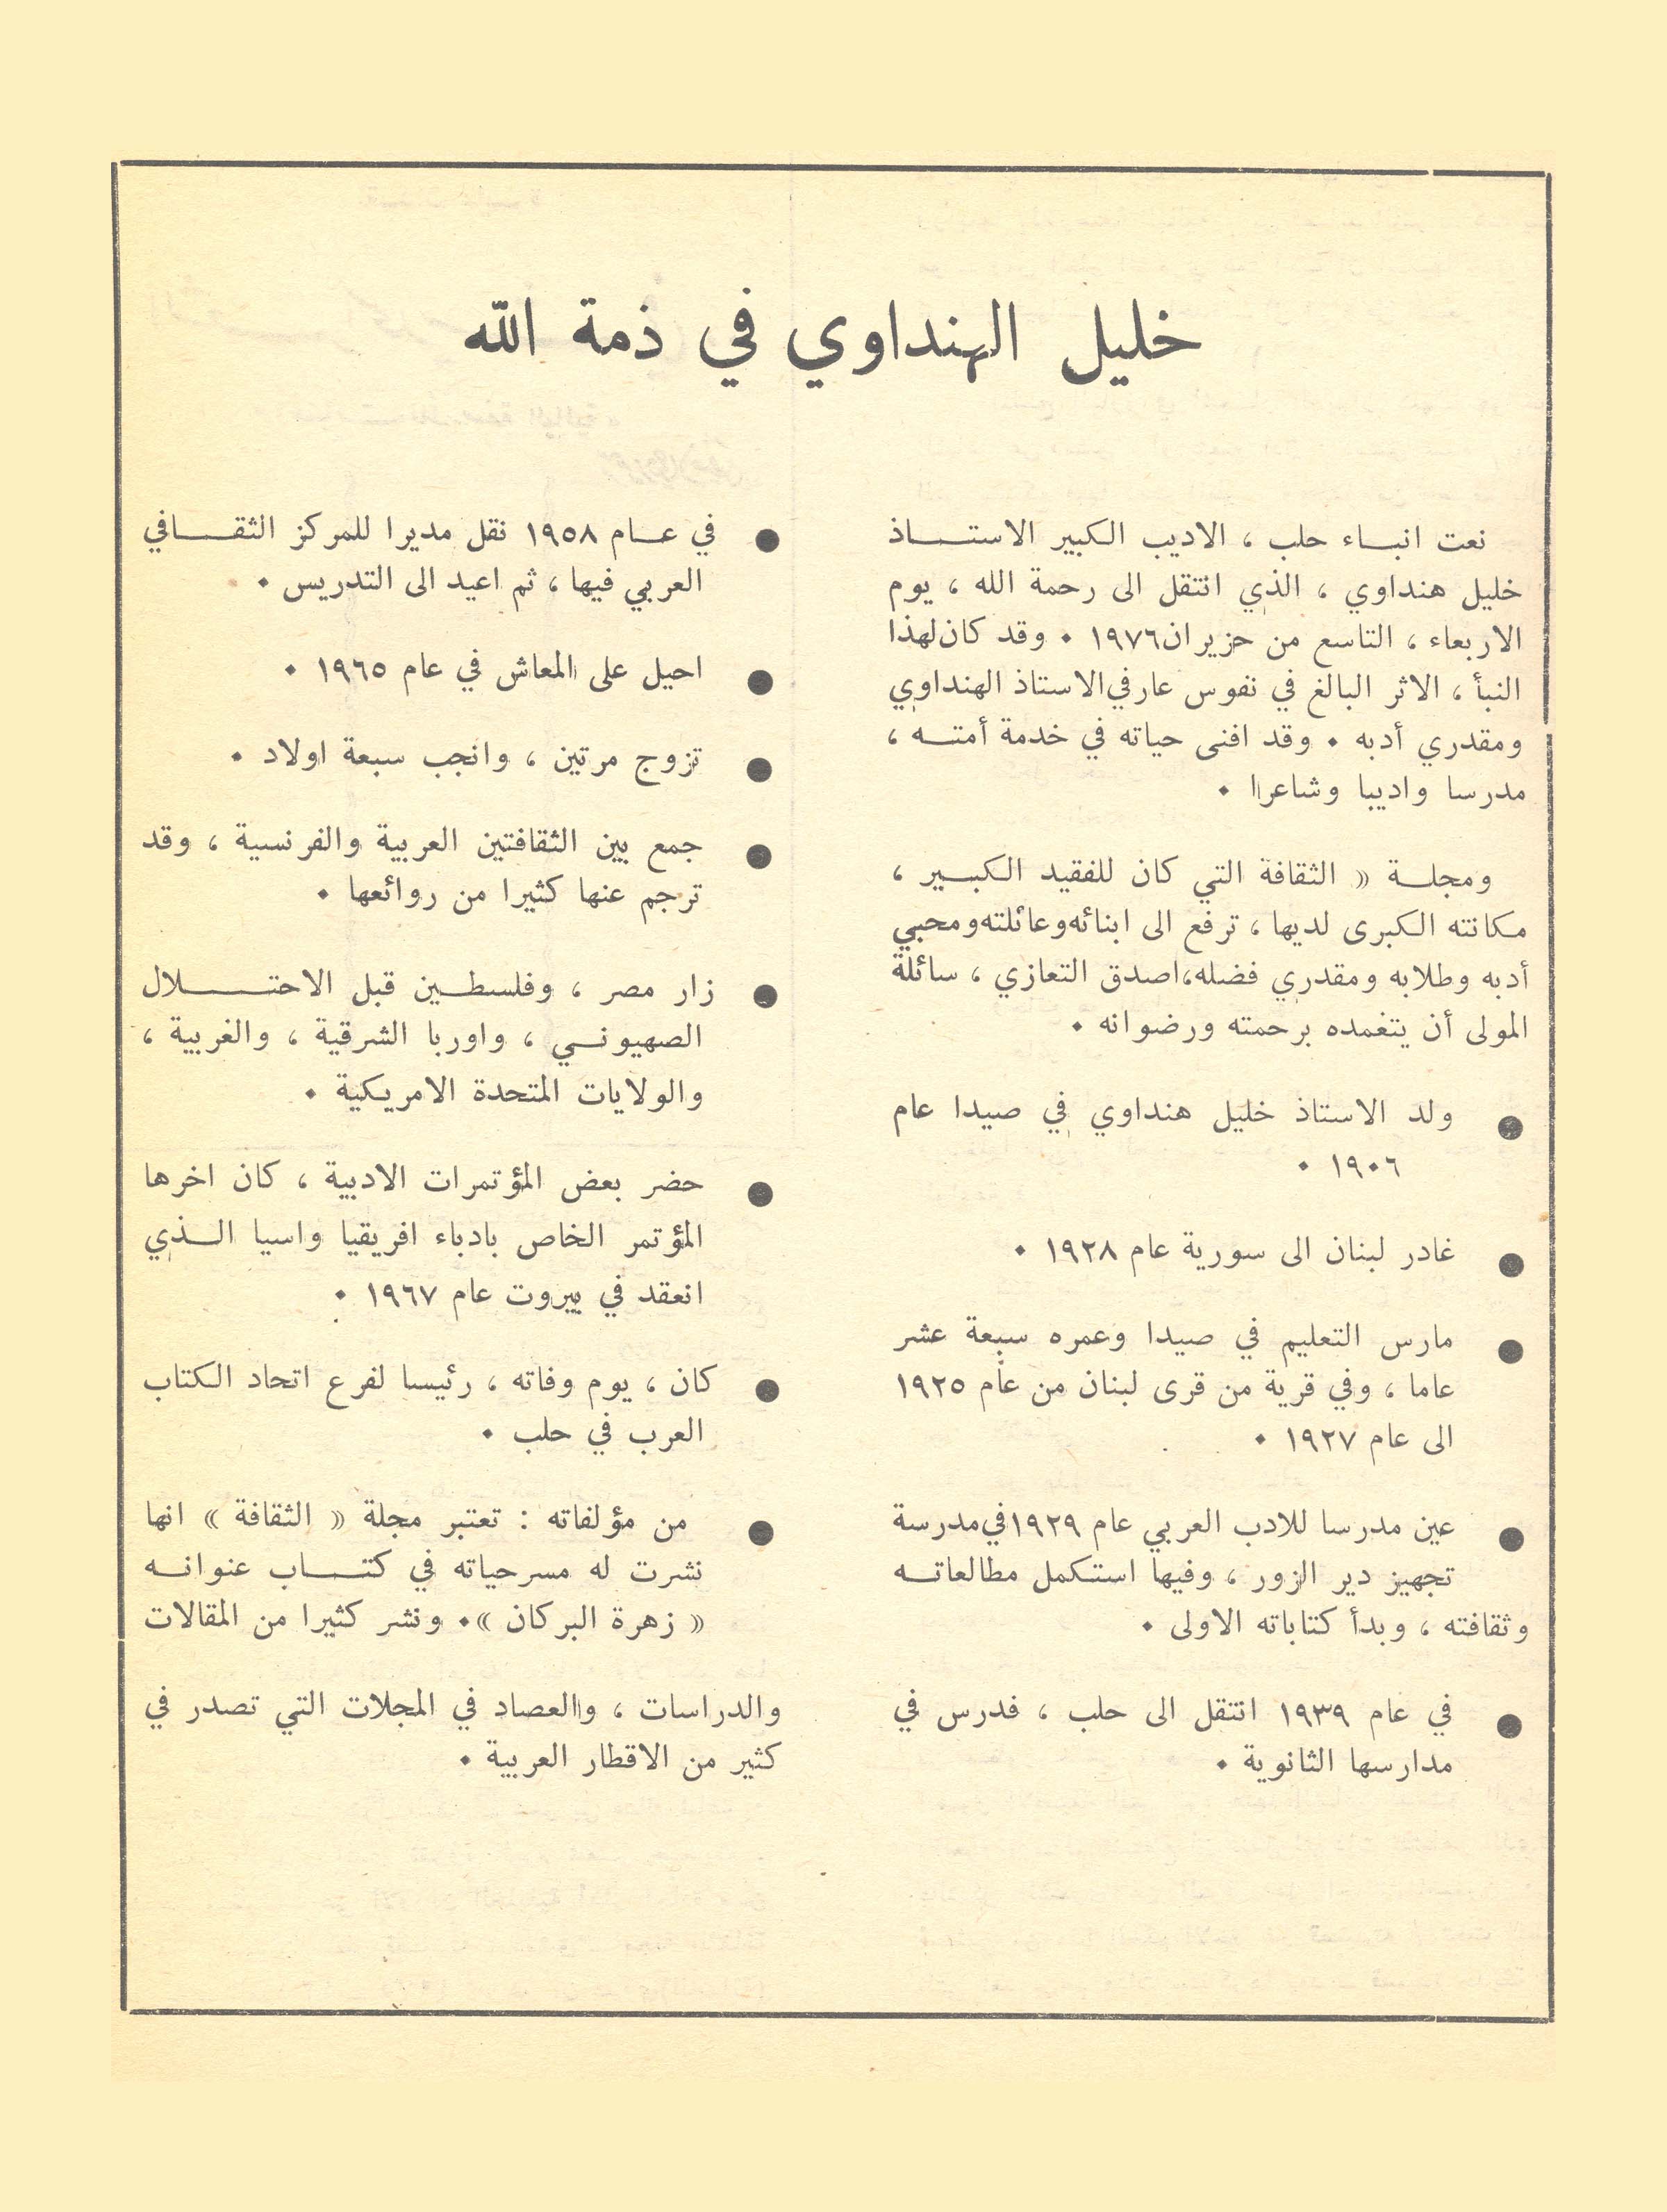 خليل الهنداوي في ذمة الله
نعت انباء حلب ، الاديب الكبير الاستاذ
خليل هنداوي ، الذي انتقل الى رحمة الله ، يوم
الاربعاء ، التاسع من حزيران١٩٧٦ ٠ وقد كان لهذا
النبأ ، الاثر البالغ في نفوس عارفي الاستاذ الهنداوي
ومقدري أدبه ٠ وقد افنى حياته في خدمة أمته ،
مدرسا واديبا وشاعرا ٠
ومجلة « الثقافة التي كان للفقيد الكبير ،
مكانته الكبرى لديها ، ترفع الى ابنائه وعائلته ومحبي
أدبه وطلابه ومقدري فضله ،اصدق التعازي ، سائلة
المولى أن يتغمده برحمته ورضوانه ٠
● ولد الاستاذ خليل هنداوي في صيدا عام
١٩٠٦ ٠
● غادر لبنان الى سورية عام ١٩٢٨ ٠
● مارس التعليم في صيدا وعمره سبعة عشر
عاما ، وفي قرية من قرى لبنان من عام ١٩٢٥
الى عام ١٩٢٧ ٠
● عين مدرسا للادب العربي عام ١٩٢٩في مدرسة
تجهيز دير الزور ، وفيها استكمل مطالعاته
وثقافته ، وبدأ كتاباته الاولى ٠
● في عام ١٩٣٩ انتقل الى حلب ، فدرس في
مدارسها الثانوية ٠
● في عام ١٩٥٨ نقل مديرا للمركز الثقافي
العربي فيها ، ثم اعيد الى التدريس ٠
● احيل على المعاش في عام ١٩٦٥ ٠
● تزوج مرتين ، وانجب سبعة اولاد ٠
● جمع بين الثقافتين العربية والفرنسية ، وقد
ترجم عنها كثيرا من روائعها ٠
● زار مصر ، وفلسطين قبل الاحتلال
الصهيوني ، واوربا الشرقية ، والغربية ،
والولايات المتحدة الامريكية ٠
● حضر بعض المؤتمرات الادبية ، كان اخرها
المؤتمر الخاص بادباء افريقيا واسيا الذي
انعقد في بيروت عام ١٩٦٧ ٠
● كان ، يوم وفاته ، رئيسا لفرع اتحاد الكتاب
العرب في حلب ٠
● من مؤلفاته : تعتبر مجلة « الثقافة » انها
نشرت له مسرحياته في كتاب عنوانه
« زهرة البركان »٠ ونشر كثيرا من المقالات
والدراسات ، والعصاد في المجلات التي تصدر في
كثير من الاقطار العربية ٠